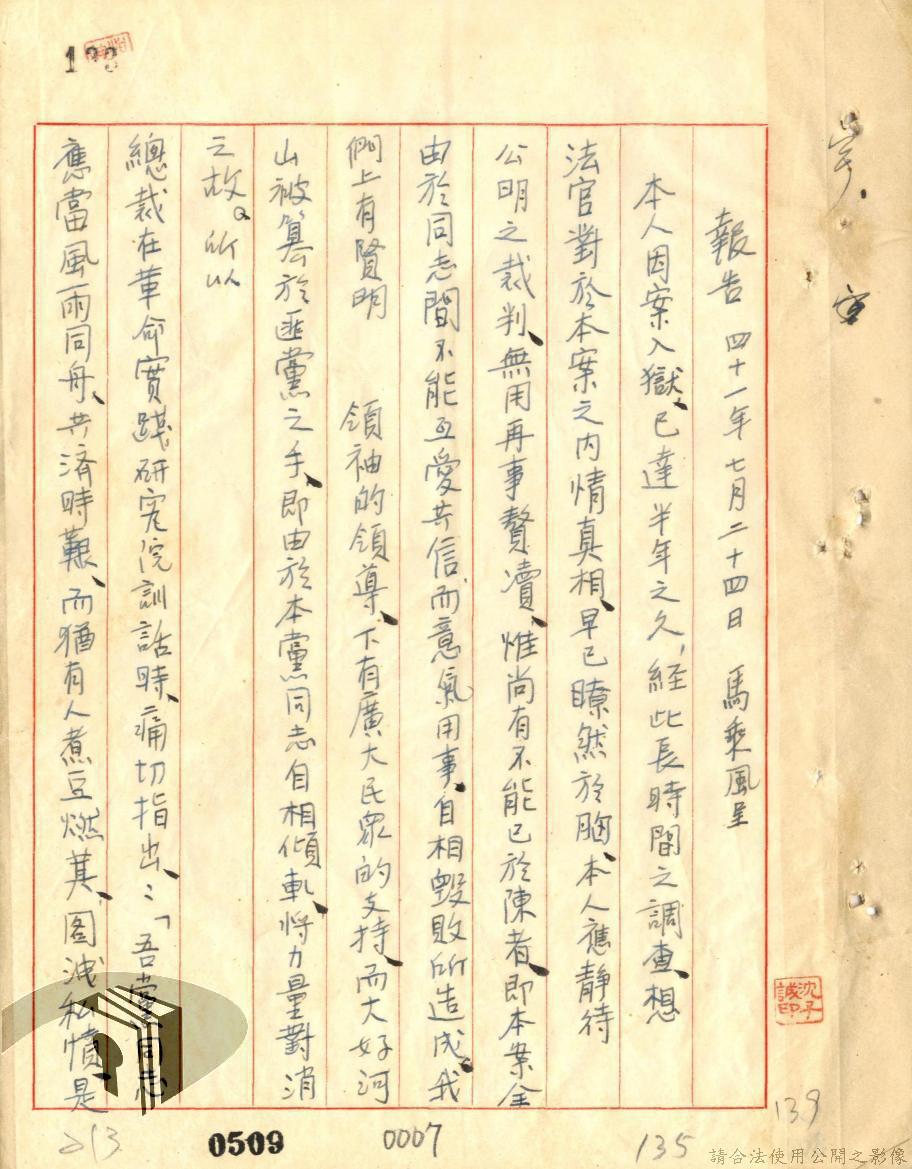 報告 四十一年七月二十四日 馬乘風呈
本人因案入獄、已達半年之久,經此長時間之調查、想
法官對於本案之內情真相、早已瞭然於胸、本人應靜待
公明之裁判、無用再事贅瀆、惟尚有不能已於陳者、即本案全
由於同志間不能互愛共信、而意氣用事、自相毀敗所造成。我
們上有賢明 領袖的領導、下有廣大民眾的支持、而大好河
山被篡於匪黨之手、即由於本黨同志自相傾軋、將力量對消
之故。所以
總裁在革命實踐研究院訓話時、痛切指出、:「吾黨同志
應當風雨同舟、共濟時艱、而猶有人煮豆燃萁、圖洩私憤、是
沈子誠印
139
135
0007
0509
213
請合法使用公開之影像